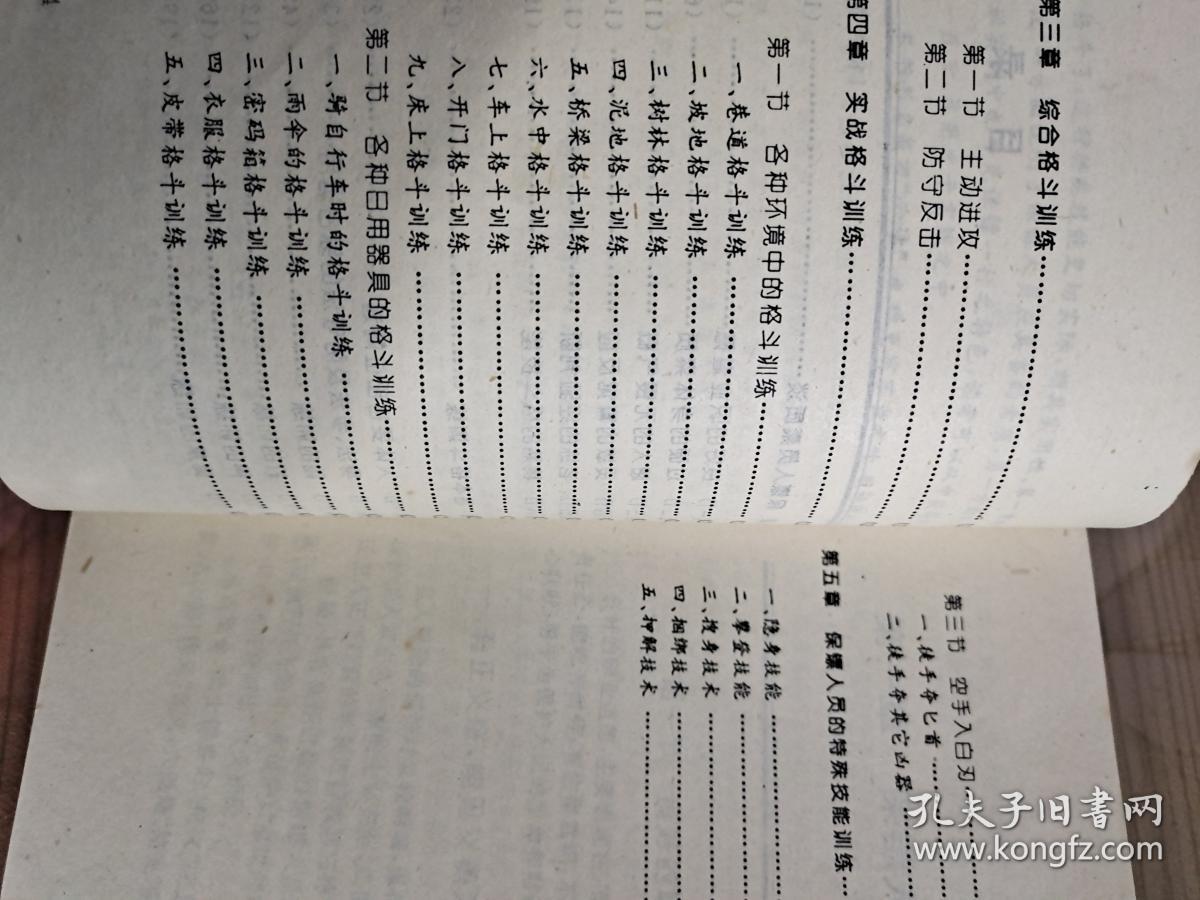 第三章 综合格斗训练
第一节 主动进攻
第二节 防守反击
第四章 实战格斗训练
第一节 各种环境中的格斗训练
一、巷道格斗训练
二、坡地格斗训练
三、树林格斗训练
四、泥地格斗训练
五、桥梁格斗训练
六、水中格斗训练
七、车上格斗训练
八、开门格斗训练
九、床上格斗训练
第二节 各种日用器具的格斗训练
一、骑自行车时的格斗训练
二、雨伞的格斗训练
三、密码箱格斗训练
四、衣服格斗训练
五、皮带格斗训练
第三节 空手入白刃
一、徒手夺匕首
二、徒手夺其它凶器
第五章 保镖人员的特殊技能训练
一、隐身技能
二、攀登技能
三、搜身技术
四、捆绑技术
五、押解技术
孔夫子旧书网
www.kongfz.com